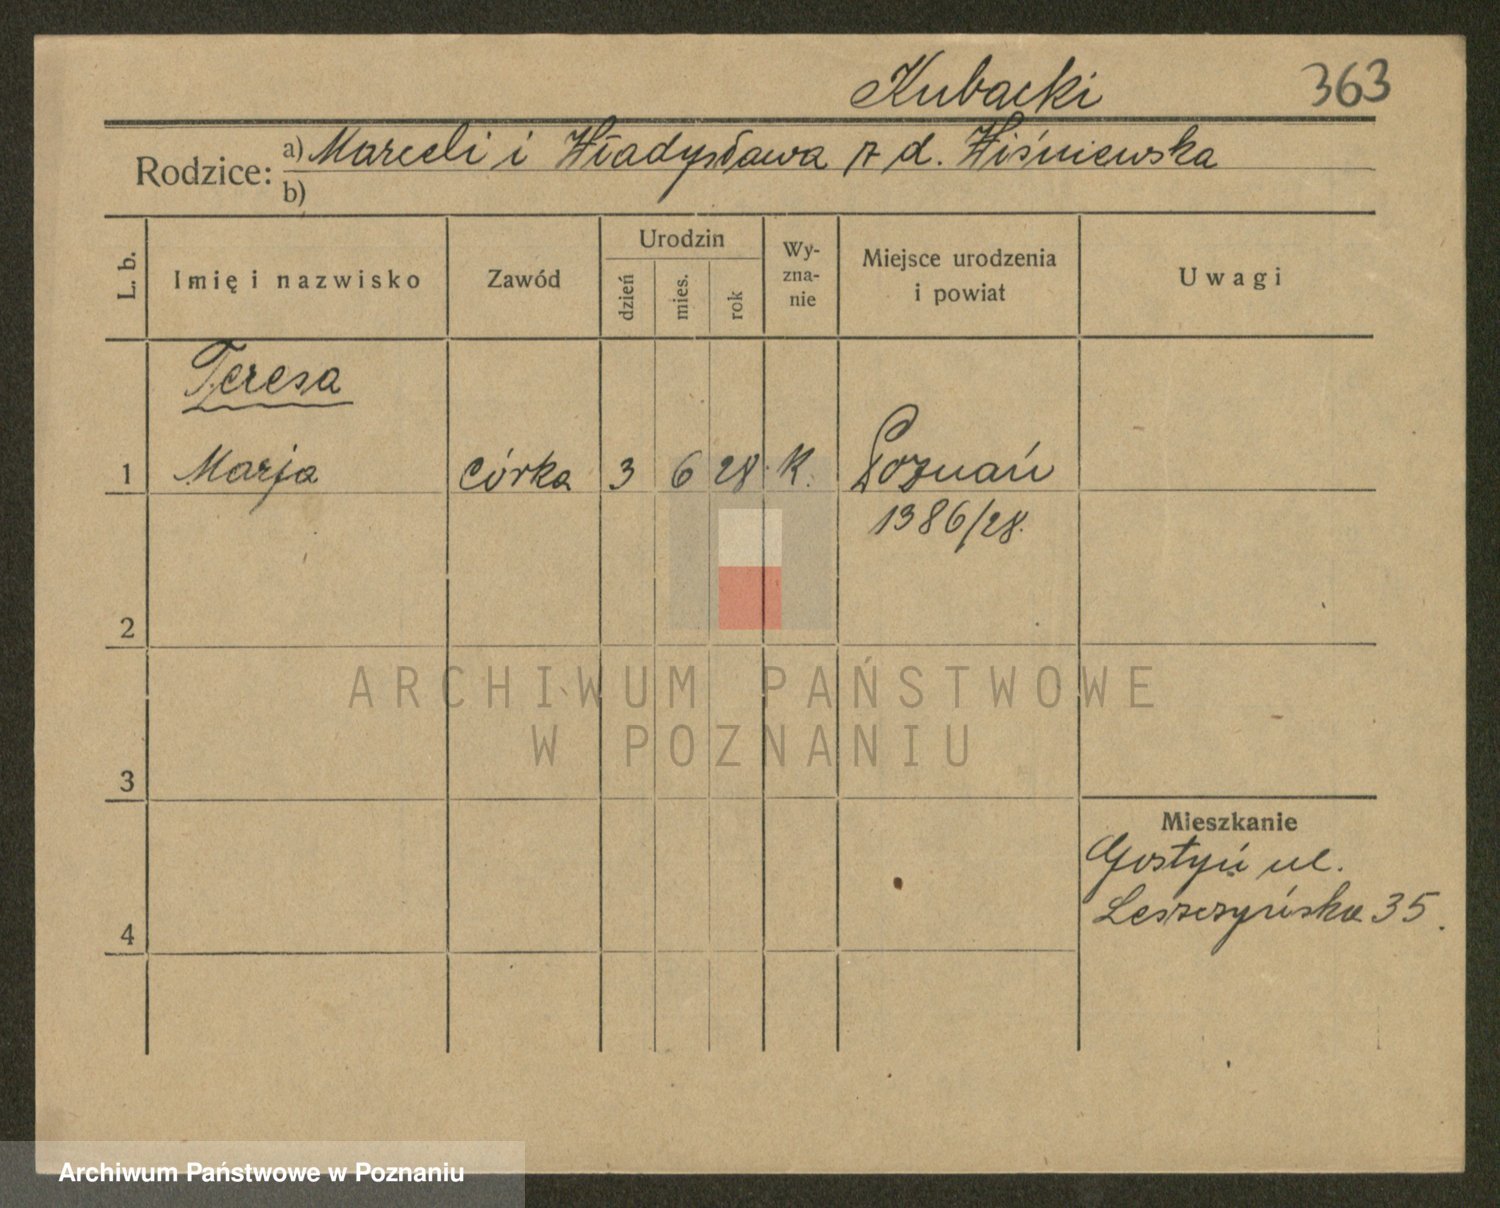 Kubacki 363
Rodzice: a) Marceli i Władysława z d. Wiśniewska
b)
L. b. Imię i nazwisko Zawód Urodzin dzień mies. rok Wy-zna-nie Miejsce urodzenia i powiat Uwagi
Teresa
1 Marja córka 3 6 28 K. Poznań
1386/28.
2
ARCHIWUM PAŃSTWOWE
W POZNANIU
3
Mieszkanie
Gostyń ul.
Leszczyńska 35.
4
Archiwum Państwowe w Poznaniu